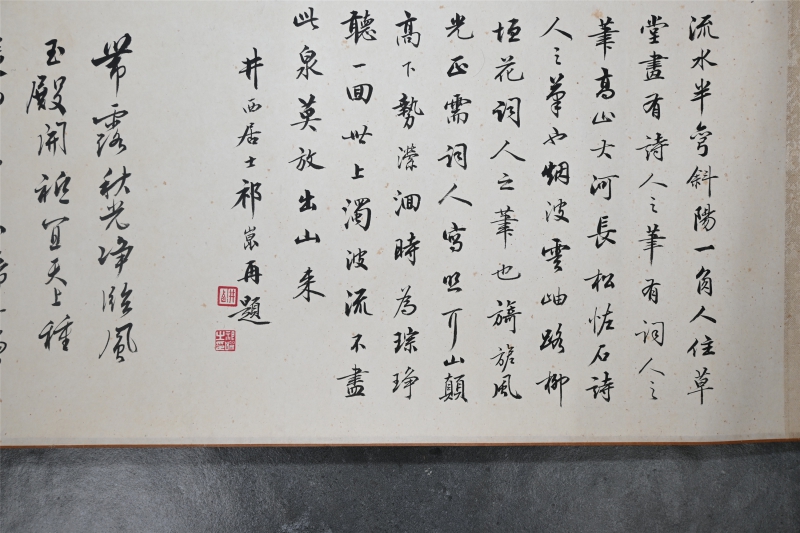 流水半穹斜陽一角人住草
堂畫有詩人之筆有詞人之
筆高山大河長松怪石詩
人之筆也烟波雲岫路柳
垣花詞人之筆也旖旎風
光正需詞人寫照 山顛
高下勢瀠洄時為琮琤
聽一回世上濁波流不盡
此泉莫放出山来
井西居士祁崑再題
帶露秋光净臨風
玉殿開祗宜天上種